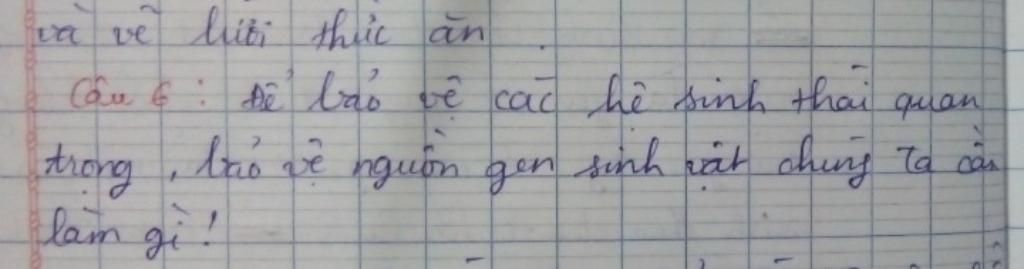 và vẽ lưới thức ăn.
Câu 6: Để bảo vệ các hệ sinh thái quan
trọng, bảo vệ nguồn gen sinh vật chúng ta cần
làm gì!